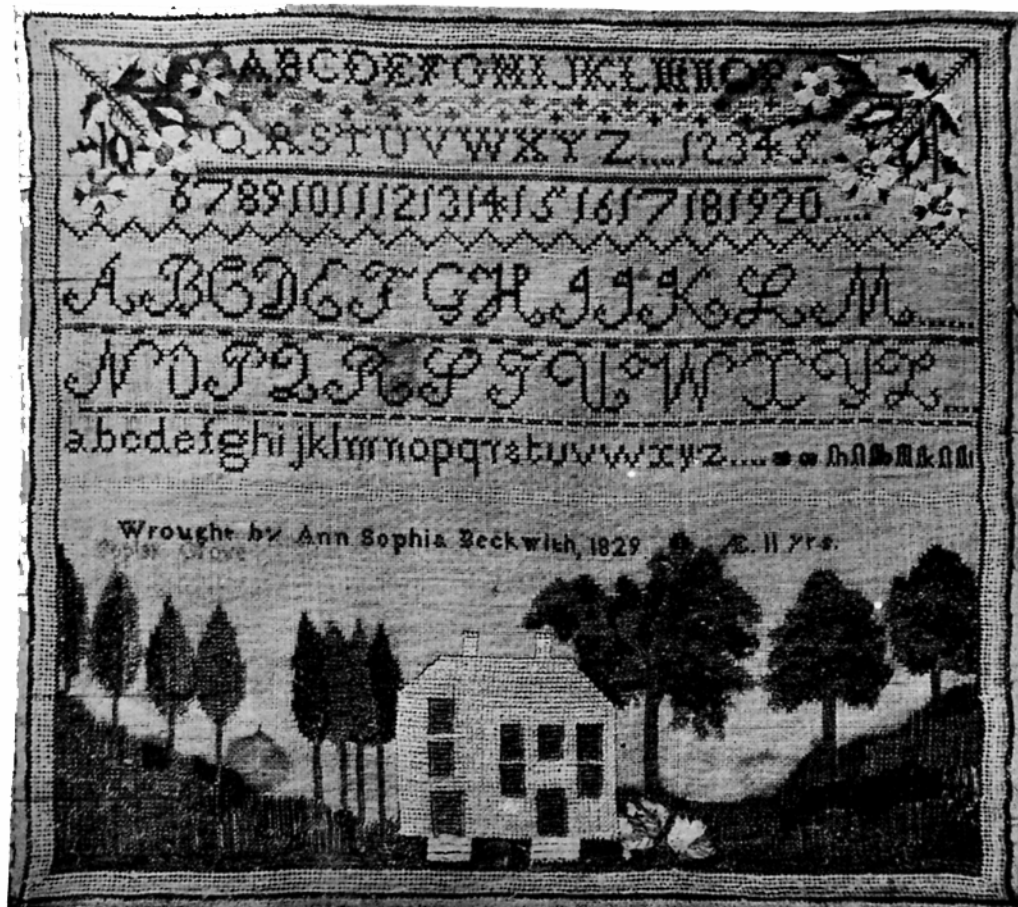 ABCDEFGHIJKLMNOP
QRSTUVWXYZ....12345..
67891011121314151617181920.....
ABCDEFGHIJKLM......
NOPQRSTUWXYZ....
abcdefghijklmnopqrstuvwxyz....
Wrought by Ann Sophia Beckwith, 1829 Æ. 11 yrs.
Poplar Grove